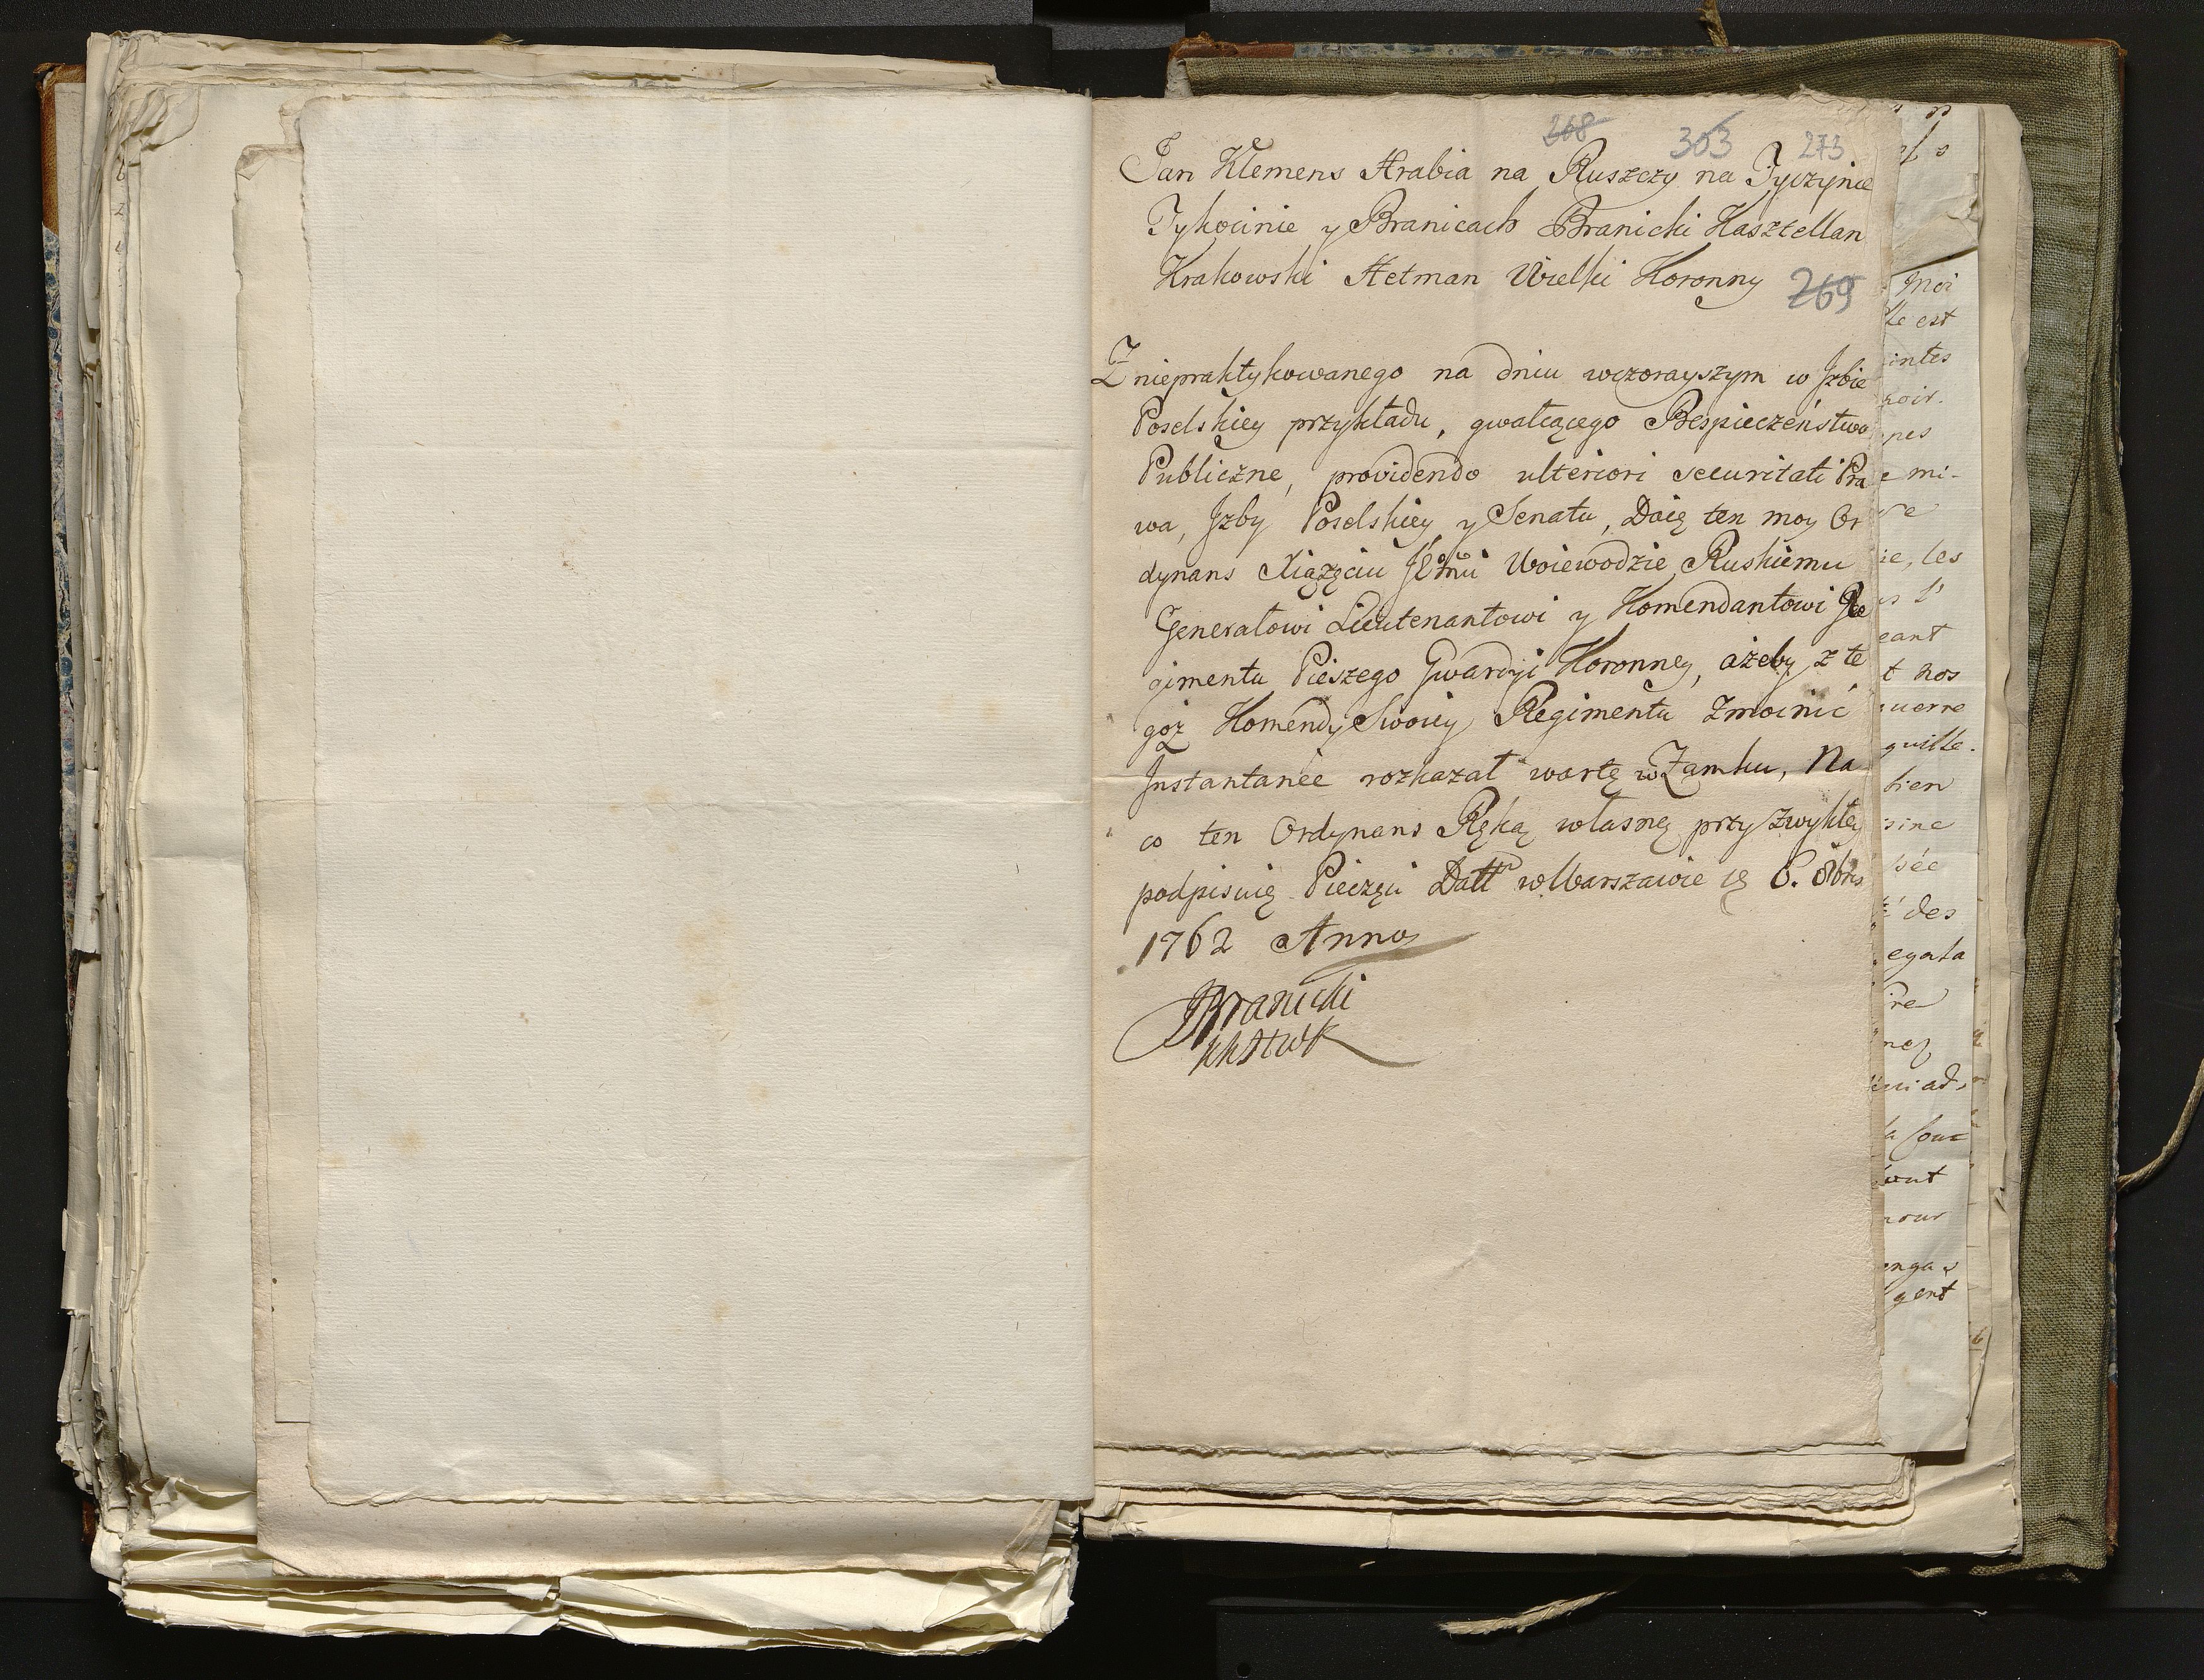 268 303 273
Jan Klemens Hrabia na Ruszczy na Tyczynie
Tykocinie y Branicach Branicki Kasztellan
Krakowski Hetman Wielki Koronny 269
Z niepraktykowanego na dniu wczorayszym w Jzbie
Poselskiey przykładu, gwałcącego Bespieczeństwo
Publiczne, providendo ulteriori securitati Pra
wa, Jzby Poselskiey y Senatu, Daię ten moy Or
dynans Xiązęciu JEmci Woiewodzie Ruskiemu
Generałowi Lieutenantowi y Komendantowi Re
gimentu Pieszego Gwardyi Koronney, ażeby z te
goż Komendy Swoiey Regimentu zmocnić
Jnstantanee rozkazał wartę w Zamku, Na
co ten Ordynans Ręką własną przy zwykłey
podpisuię Pieczęci Datt w Warszawie 8bris
1762 Anno
JBranicki
KKHWK
moi
le est
intes
mi-
les
eant
t nos
uerre
quille.
bien
sée
des
egata
ire
gent